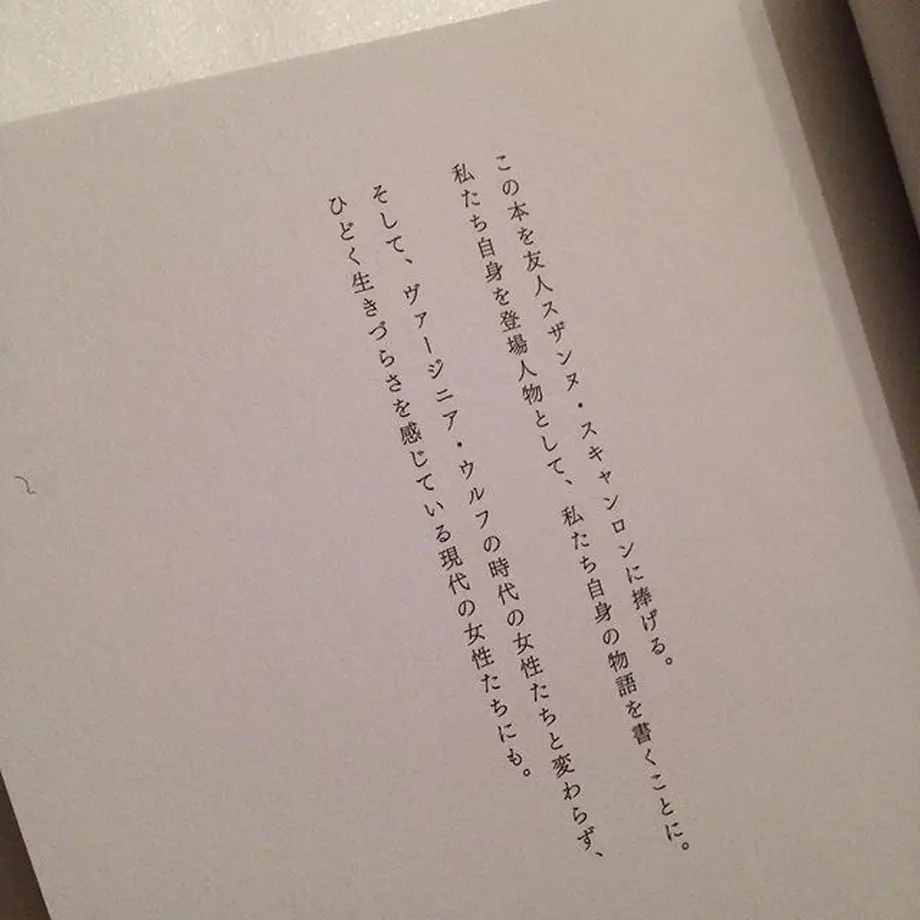 この本を友人スザンヌ・スキャンロンに捧げる。
私たち自身を登場人物として、私たち自身の物語を書くことに。
そして、ヴァージニア・ウルフの時代の女性たちと変わらず、
ひどく生きづらさを感じている現代の女性たちにも。